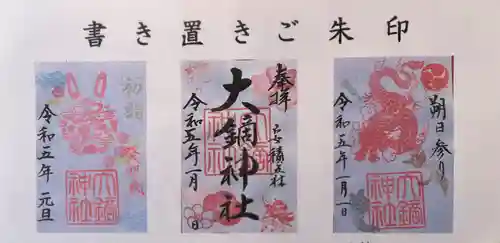 書き置きご朱印
初詣
令和五年 元旦
大鏑神社
奉拝
大鏑神社
令和五年一月
日
大鏑神社
朔日参り
令和五年一月一日
大鏑神社